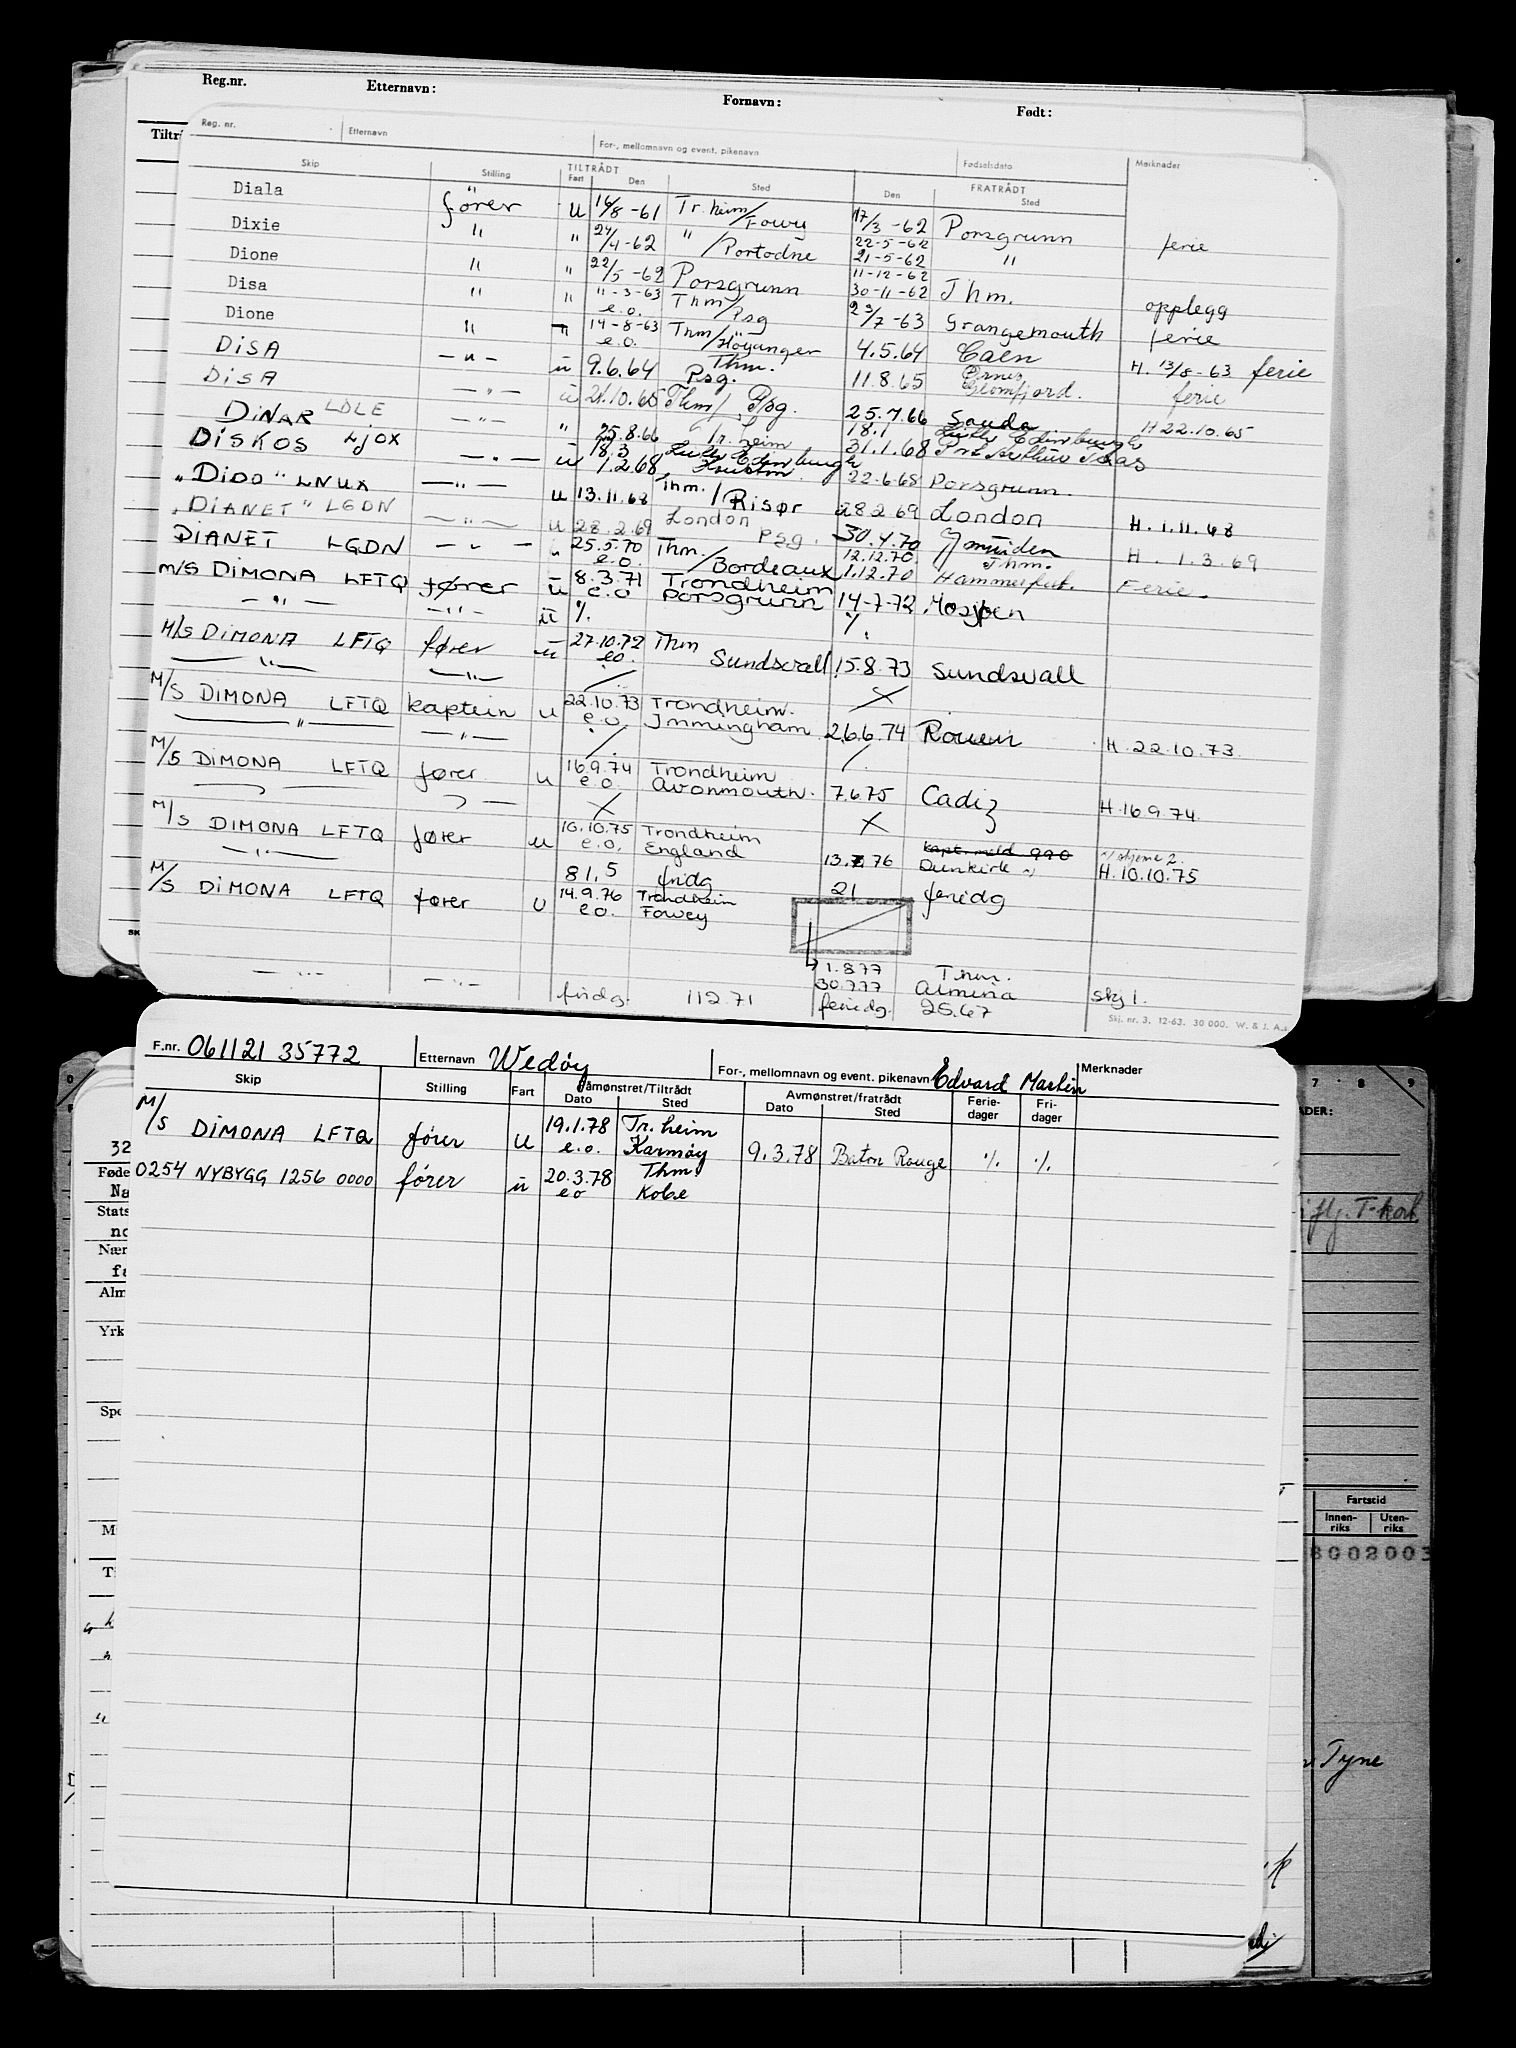 Reg.nr. Etternavn: Fornavn: Født:
Reg. nr. Etternavn For-, mellomnavn og event. pikenavn Fødselsdato Merknader
Skip Stilling TILTRÅDT Fart Den Sted FRATRÅDT Den Sted
Diala fører u 16/8-61 Tr.heim/Fowey 17/3-62 Porsgrunn ferie
Dixie " " 24/4-62 " /Portodne 22-5-62 21-5-62 "
Dione " " 22/5-62 Porsgrunn 11-12-62 30-11-62 Thm. opplegg
Disa " " 11-3-63 e.o. Thm/Psg 23/7-63 Grangemouth ferie
Dione " " 14-8-63 e.o. Thm/Höyanger 4.5.64 Caen H. 13/8-63 ferie
DISA -"- u 9.6.64 Thm. Psg. 11.8.65 Ornes Glomfjord. ferie
DISA -"- u 21.10.65 Thm/ Psg. 25.7.66 Sauda H 22.10.65
DINAR LDLE -"- " 25.8.66 Tr.heim 18.1 Edinburgh
DISKOS LJOX -"- u 18.3 1.2.68 Edinburgh Houston 31.1.68 Prt Arthur Texas
"DIDO" LNUX -"- u 13.11.68 Thm./Risør 22-6-68 Porsgrunn.
"DIANET" LGDN -"- u 28.2.69 London Psg. 28.2.69 London H. 1.11.68
DIANET LGDN -"- " 25.5.70 e.o. Thm./Bordeaux 30.4.70 Ijmuiden H. 1.3.69
12.12.70 Thm.
1.12.70 Hammerfest. Ferie.
m/s DIMONA LFTQ fører u 8.3.71 e.o Trondheim Porsgrunn 14-7-72 Mosjøen
-"- -"- u ·/. ·/.
M/S DIMONA LFTQ fører u 27.10.72 e.o. Thm Sundsvall 15.8.73 Sundsvall
-"- -"-
M/S DIMONA LFTQ kaptein u 22.10.73 e.o. Trondheim. Immingham 26.6.74 Rouen H. 22.10.73
-"- -"-
M/S DIMONA LFTQ fører u 16.9.74 e.o Trondheim Avonmouth. 7.6.75 Cadiz H. 16.9.74
M/S DIMONA LFTQ fører u 10.10.75 e.o. Trondheim England 13.7.76 Dunkirk H. 10.10.75
-"- 81,5 fridg 21 feriedg
M/S DIMONA LFTQ fører u 14.9.76 e.o. Trondheim Fowey
1.8.77 Thm.
30.7.77 Almeria skj 1.
-"- -"- fridg. 112.71 feriedg. 25.67
Skj. nr. 3. 12-63. 30 000. W. & J. A.s
F.nr. 061121 35772 Etternavn Wedøy For-, mellomnavn og event. pikenavn Edvard Martin Merknader
Skip Stilling Fart Påmønstret/Tiltrådt Dato Sted Avmønstret/fratrådt Dato Sted Feriedager Fridager
M/S DIMONA LFTQ fører u 19.1.78 e.o. Tr.heim Karmøy 9.3.78 Baton Rouge ·/. ·/.
0254 NYBYGG 1256 0000 fører u 20.3.78 eo Thm Kobe
32
Føde
Na
Stats
no
Nær
fa
Alm
Yrk
Spe
M
T
7 8 9
ADER:
flg. T-kort
Fartstid
Innen-riks Uten-riks
8002003
Tyne